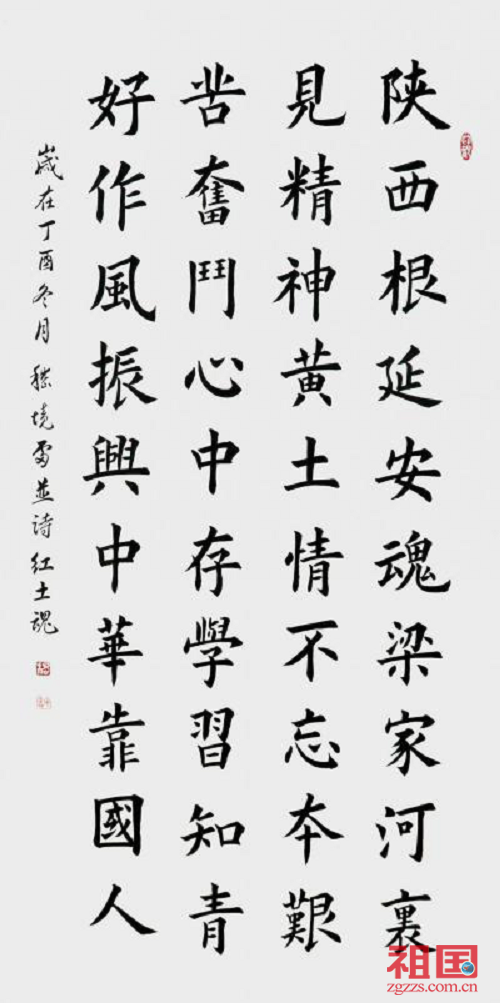 陕西根延安魂梁家河裏
見精神黄土情不忘本艱
苦奮鬥心中存學習知青
好作風振興中華靠國人
歲在丁酉冬月 境並诗红土魂
祖国
zgzzs.com.cn